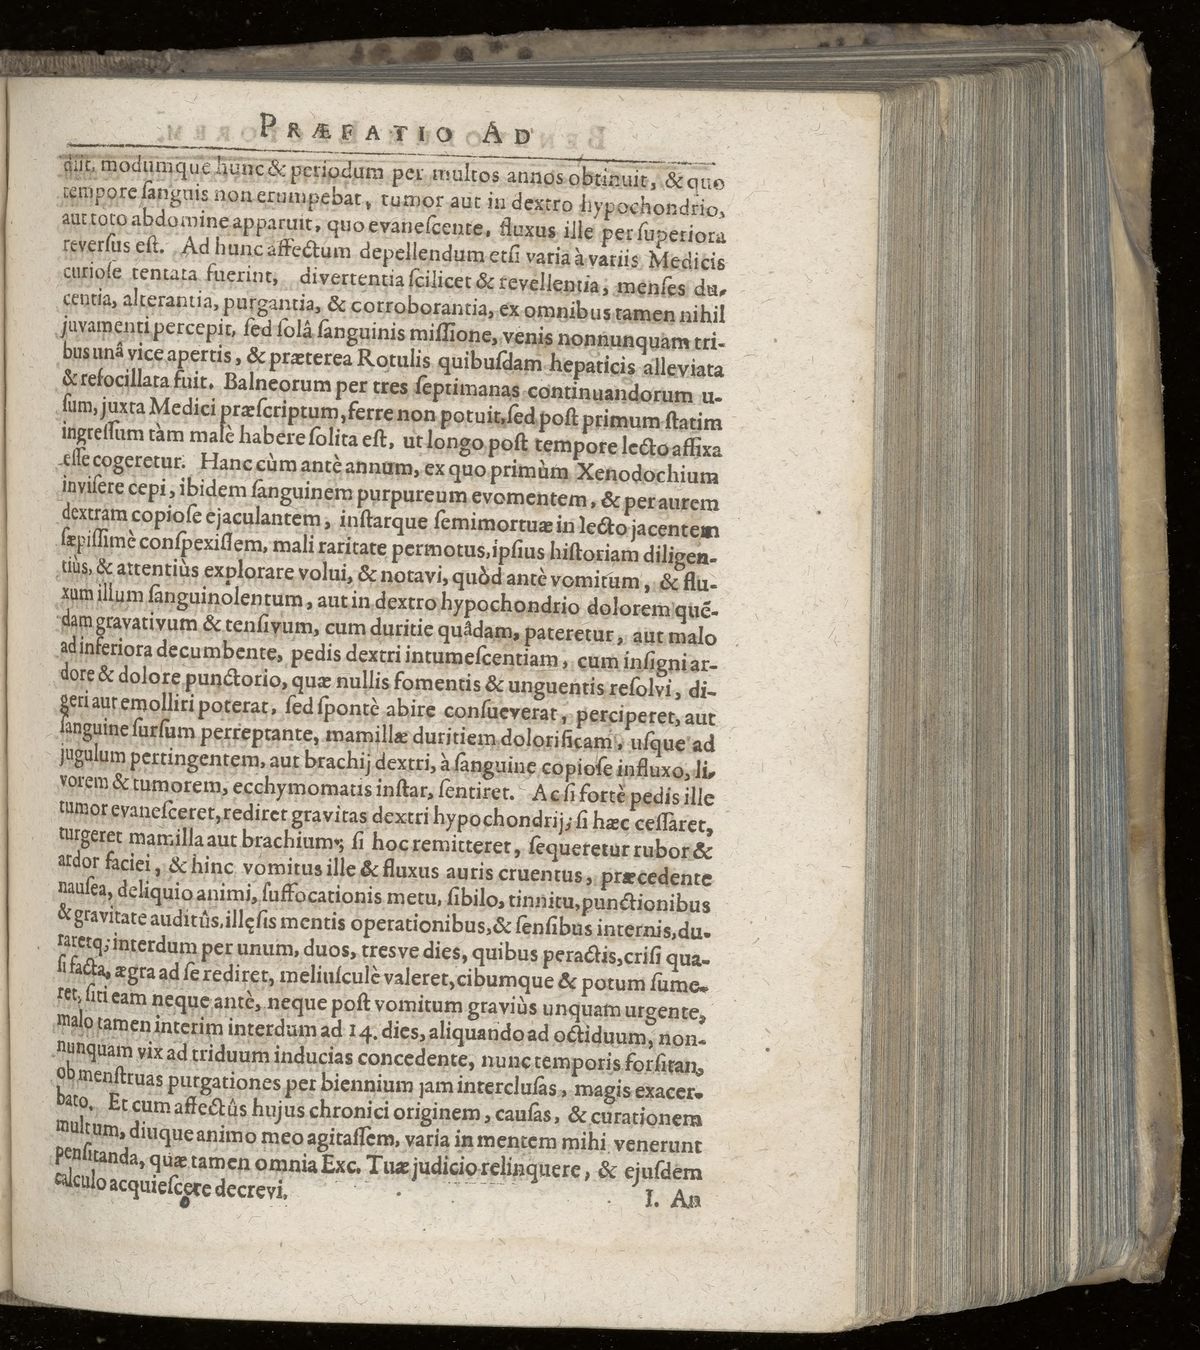 PRÆFATIO AD
diit, modumque hunc & periodum per multos annos obtinuit, & quo
tempore ſanguis non erumpebat, tumor aut in dextro hypochondrio,
aut toto abdomine apparuit, quo evaneſcente, fluxus ille per ſuperiora
reverſus eſt. Ad hunc affectum depellendum etſi varia à variis Medicis
curioſe tentata fuerint, divertentia ſcilicet & revellentia, menſes du-
centia, alterantia, purgantia, & corroborantia, ex omnibus tamen nihil
juvamenti percepit, ſed ſolâ ſanguinis miſſione, venis nonnunquam tri-
bus unâ vice apertis, & præterea Rotulis quibuſdam hepaticis alleviata
& refocillata fuit. Balneorum per tres ſeptimanas continuandorum u-
ſum, juxta Medici præſcriptum, ferre non potuit, ſed poſt primum ſtatim
ingreſſum tàm malè habere ſolita eſt, ut longo poſt tempore lecto affixa
eſſe cogeretur. Hanc cùm antè annum, ex quo primùm Xenodochium
inviſere cepi, ibidem ſanguinem purpureum evomentem, & per aurem
dextram copioſe ejaculantem, inſtarque ſemimortuæ in lecto jacentem
ſæpiſſimè conſpexiſſem, mali raritate permotus, ipſius hiſtoriam diligen-
tiùs, & attentiùs explorare volui, & notavi, quòd antè vomitum, & flu-
xum illum ſanguinolentum, aut in dextro hypochondrio dolorem quẽ-
dam gravativum & tenſivum, cum duritie quâdam, pateretur, aut malo
ad inferiora decumbente, pedis dextri intumeſcentiam, cum inſigni ar-
dore & dolore punctorio, quæ nullis fomentis & unguentis reſolvi, di-
geri aut emolliri poterat, ſed ſpontè abire conſueverat, perciperet, aut
ſanguine ſurſum perreptante, mamillæ duritiem dolorificam, uſque ad
jugulum pertingentem, aut brachij dextri, à ſanguine copioſe influxo, li-
vorem & tumorem, ecchymomatis inſtar, ſentiret. Ac ſi fortè pedis ille
tumor evaneſceret, rediret gravitas dextri hypochondrij; ſi hæc ceſſaret,
turgeret mamilla aut brachium; ſi hoc remitteret, ſequeretur rubor &
ardor faciei, & hinc vomitus ille & fluxus auris cruentus, præcedente
nauſea, deliquio animi, ſuffocationis metu, ſibilo, tinnitu, punctionibus
& gravitate auditûs, illęſis mentis operationibus, & ſenſibus internis, du-
raretq; interdum per unum, duos, tresve dies, quibus peractis, criſi qua-
ſi facta, ægra ad ſe rediret, meliuſculè valeret, cibumque & potum ſume-
ret, ſiti eam neque antè, neque poſt vomitum graviùs unquam urgente,
malo tamen interim interdum ad 14. dies, aliquando ad octiduum, non-
nunquam vix ad triduum inducias concedente, nunc temporis forſitan,
ob menſtruas purgationes per biennium jam intercluſas, magis exacer-
bato. Et cum affectûs hujus chronici originem, cauſas, & curationem
multum, diuque animo meo agitaſſem, varia in mentem mihi venerunt
penſitanda, quæ tamen omnia Exc. Tuæ judicio relinquere, & ejuſdem
calculo acquieſcere decrevi.
I. An